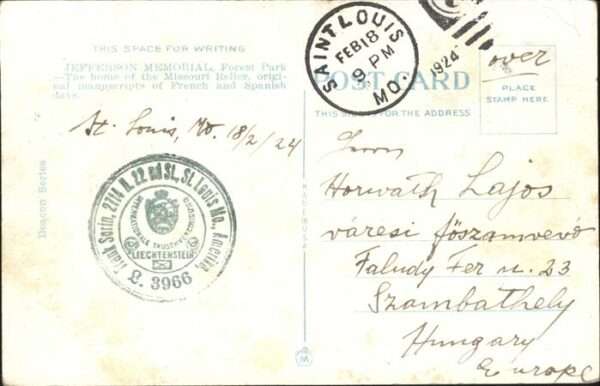 THIS SPACE FOR WRITING
JEFFERSON MEMORIAL, Forest Park
—The home of the Missouri Relics, origi-
nal manuscripts of French and Spanish
days.
St. Louis, Mo. 18/2/24
Sorin, 2714 N. 22nd St., St. Louis Mo., America.
LIECHTENSTEIN
L. 3966
Deacon Series
SAINT LOUIS
FEB 18
9 PM
1924
MO.
POST CARD
THIS SIDE FOR THE ADDRESS
over
PLACE
STAMP HERE
Herrn
Horvath Lajos
városi főszámvevő
Faludy Fer u. 23
Szombathely
Hungary
Europe